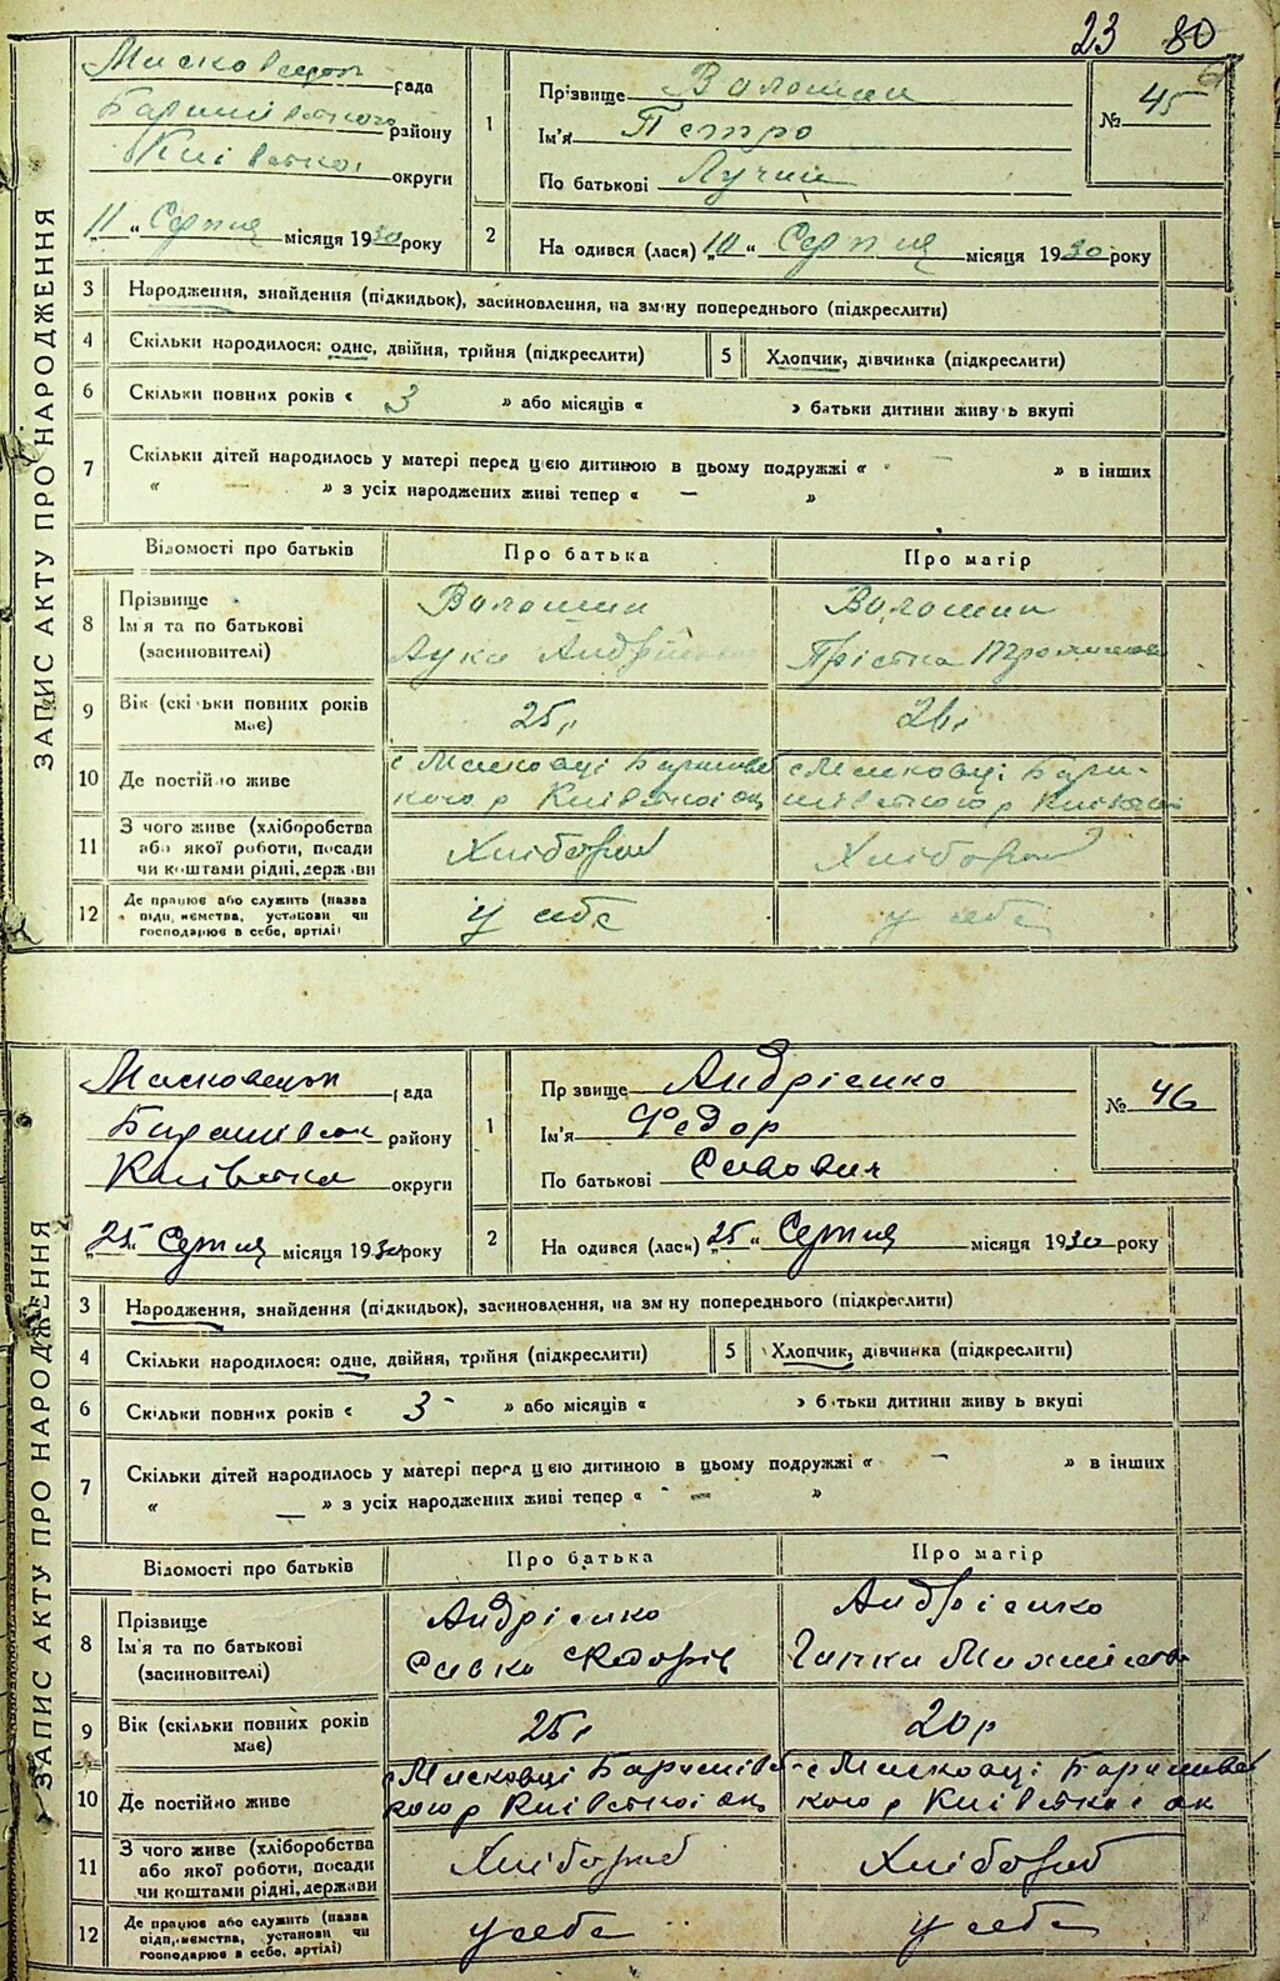 23 80
ЗАПИС АКТУ ПРО НАРОДЖЕННЯ
рада
району
округи
11 " Серпня місяця 1930 року
1
Прізвище Волошин
Ім'я Петро
По батькові
№ 45
2
На одився (лася) „10 " Серпня місяця 1930 року
3 Народження, знайдення (підкидьок), засиновлення, на зм ну попереднього (підкреслити)
4 Скільки народилося: одне, двійня, трійня (підкреслити) 5 Хлопчик, дівчинка (підкреслити)
6 Скільки повних років « 3 » або місяців « » батьки дитини живу ь вкупі
7 Скільки дітей народилось у матері перед цією дитиною в цьому подружжі « - » в інших
« — » з усіх народжених живі тепер « — »
Відомості про батьків Про батька Про матір
8 Прізвище
Ім'я та по батькові
(засиновителі)
Волошин
Лука
Волошин
9 Вік (скі ьки повних років
має)
25 р
26 р
10 Де постійно живе
с Масковці
кого р Київської ок
с Масковці Бари-
шівського р
11 З чого живе (хліборобства
або якої роботи, посади
чи коштами рідні, держ ви
Хлібороб
Хлібороб
12 Де працює або служить (назва
підп, ємства, установи чи
господарює в себе, артілі)
у себе
у себе
ЗАПИС АКТУ ПРО НАРОДЖЕННЯ
рада
району
округи
„25" Серпня місяця 1930 року
1
Пр звище Андрієнко
Ім'я Федор
По батькові Савович
№ 46
2
На одився (лася) „25 " Серпня місяця 1930 року
3 Народження, знайдення (підкидьок), засиновлення, на зм ну попереднього (підкреслити)
4 Скільки народилося: одне, двійня, трійня (підкреслити) 5 Хлопчик, дівчинка (підкреслити)
6 Скільки повних років « 3 - » або місяців « » б тьки дитини живу ь вкупі
7 Скільки дітей народилось у матері перед ц єю дитиною в цьому подружжі « — » в інших
« — » з усіх народжених живі тепер « — »
Відомості про батьків Про батька Про матір
8 Прізвище
Ім'я та по батькові
(засиновителі)
Андрієнко
Савка Федорів
Андрієнко
Гапка
9 Вік (скільки повних років
має)
25 р
20 р
10 Де постійно живе
с Масковці
кого р Київської ок
с Масковці
кого р Київської ок
11 З чого живе (хліборобства
або якої роботи, посади
чи коштами рідні, держави
Хлібороб
Хлібороб
12 Де працює або служить (назва
підп, ємства, установи чи
господарює в себе, артілі)
у себе
у себе